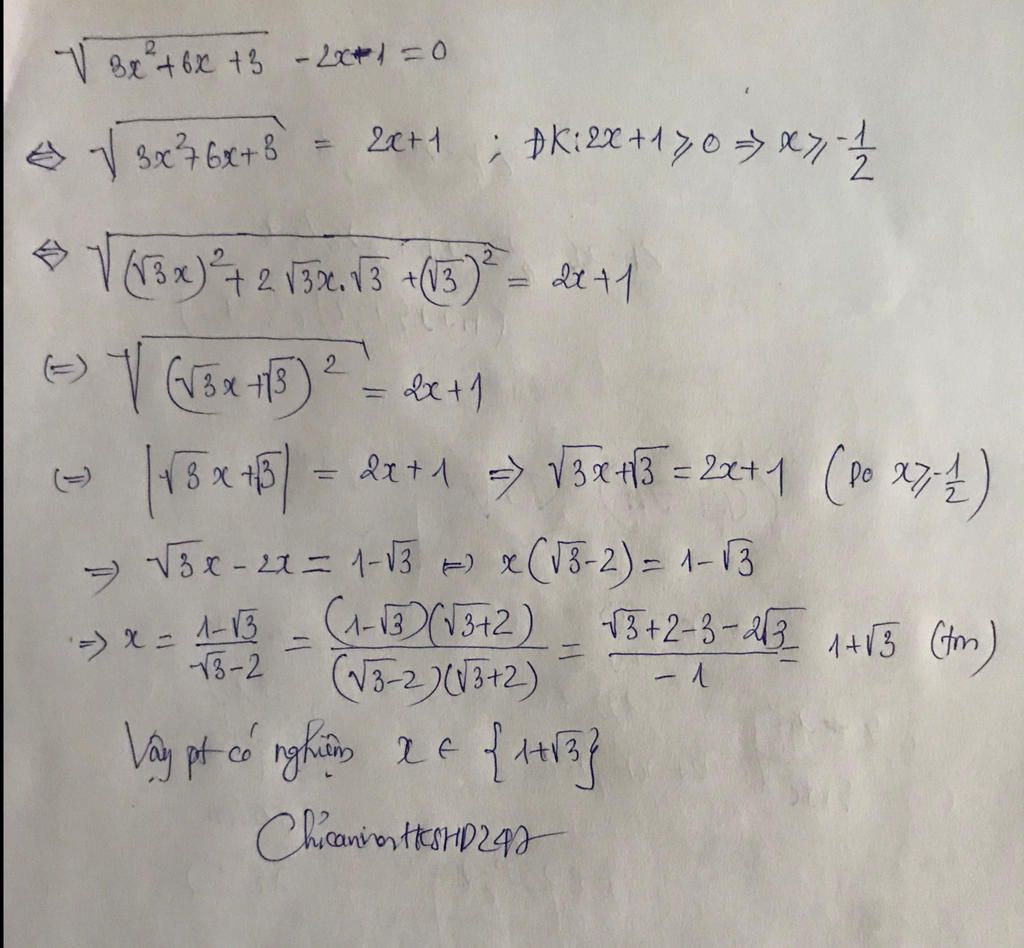 √(3x²+6x+3) -2x-1=0
⇔ √(3x²+6x+3) = 2x+1 ; ĐK: 2x+1⩾0 ⇒ x⩾-1/2
⇔ √((√3x)²+2√3x.√3+(√3)²) = 2x+1
(=) √((√3x+√3)²) = 2x+1
(=) |√3x+√3| = 2x+1 ⇒ √3x+√3=2x+1 (Do x⩾-1/2)
⇒ √3x-2x=1-√3 (=) x(√3-2)=1-√3
⇒ x = (1-√3)/(√3-2) = ((1-√3)(√3+2))/((√3-2)(√3+2)) = (√3+2-3-2√3)/(-1) = 1+√3 (tm)
Vậy pt có nghiệm x ∈ {1+√3}